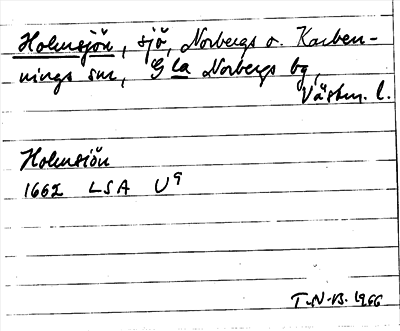 Holmsjön, sjö, Norbergs o. Karben-
nings snr, G la Norbergs bg,
Västm. l.
Holmsiön
1662 LSA U9
T.N-B. 1966